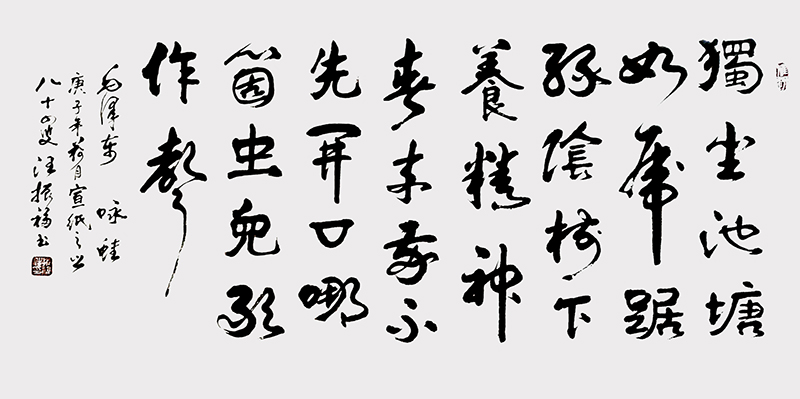 獨坐池塘
如虎踞
綠陰樹下
養精神
春来我不
先開口哪
箇虫兒敢
作聲
毛澤东 咏蛙
庚子年荷月宣紙之乡
八十四叟汪振福书